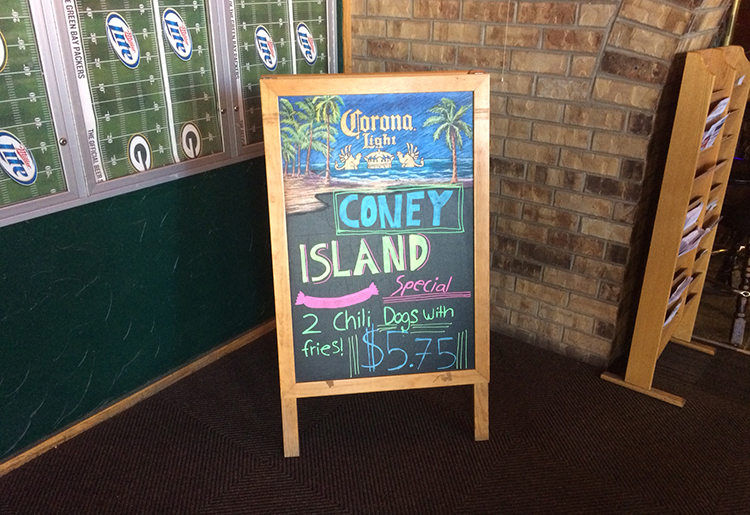 THE GREEN BAY PACKERS
GREEN BAY PACKERS
THE OFFICIAL BEER
Lite
Lite
Lite
Lite
Lite
G
G
Corona
Light
CONEY
ISLAND
Special
2 Chili Dogs with
fries! $5.75